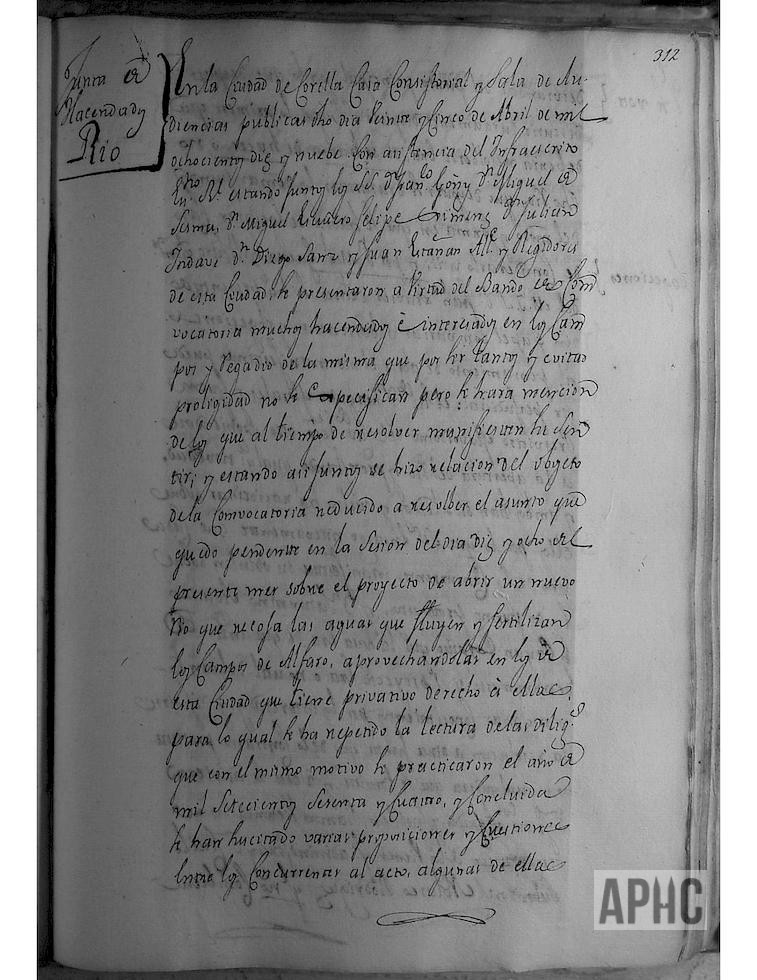 312
Junta de
Hacendados
Rio
En la Ciudad de Corella Casa Consistorial y Sala de Au-
diencias publicas dho dia Veinte y Cinco de Abril de mil
ochocientos diez y nuebe: Con asistencia del Infraescrito
Essno Rl. estando juntos los SS. Dn Franco Goñy Dn Miguel de
Sesma, Dn Miguel Felipe Ximenez Dn Julian
Dn Diego Sanz y Juan Estañan Alle y Regidores
de esta Ciudad: se presentaron a Virtud del Bando de Com
vocatoria muchos hacendados è interesados en los Cam
pos y Regadio de la misma que por ser tantos y evitar
proligidad no se Especifican pero se hara mencion
de los que al tiempo de resolver manifiesten su sen
tir; y estando asi juntos se hizo relacion del obgeto
de la Convocatoria reducido a resolber el asunto que
quedo pendiente en la Sesion del dia diez y ocho del
presente mes sobre el proyecto de abrir un nuevo
Rio que recoja las aguas que fluyen y fertilizan
los Campos de Alfaro, aprovechandolas en los de
esta Ciudad que tiene privativo derecho à ellas;
para lo qual se ha repetido la lectura de las dilig.s
que con el mismo motivo se practicaron el año de
mil Setecientos Sesenta y Cuatro, y Concluida
se han sucitado varias proposiciones y Cuestiones
entre los Concurrentes al acto, algunas de ellas
APHC